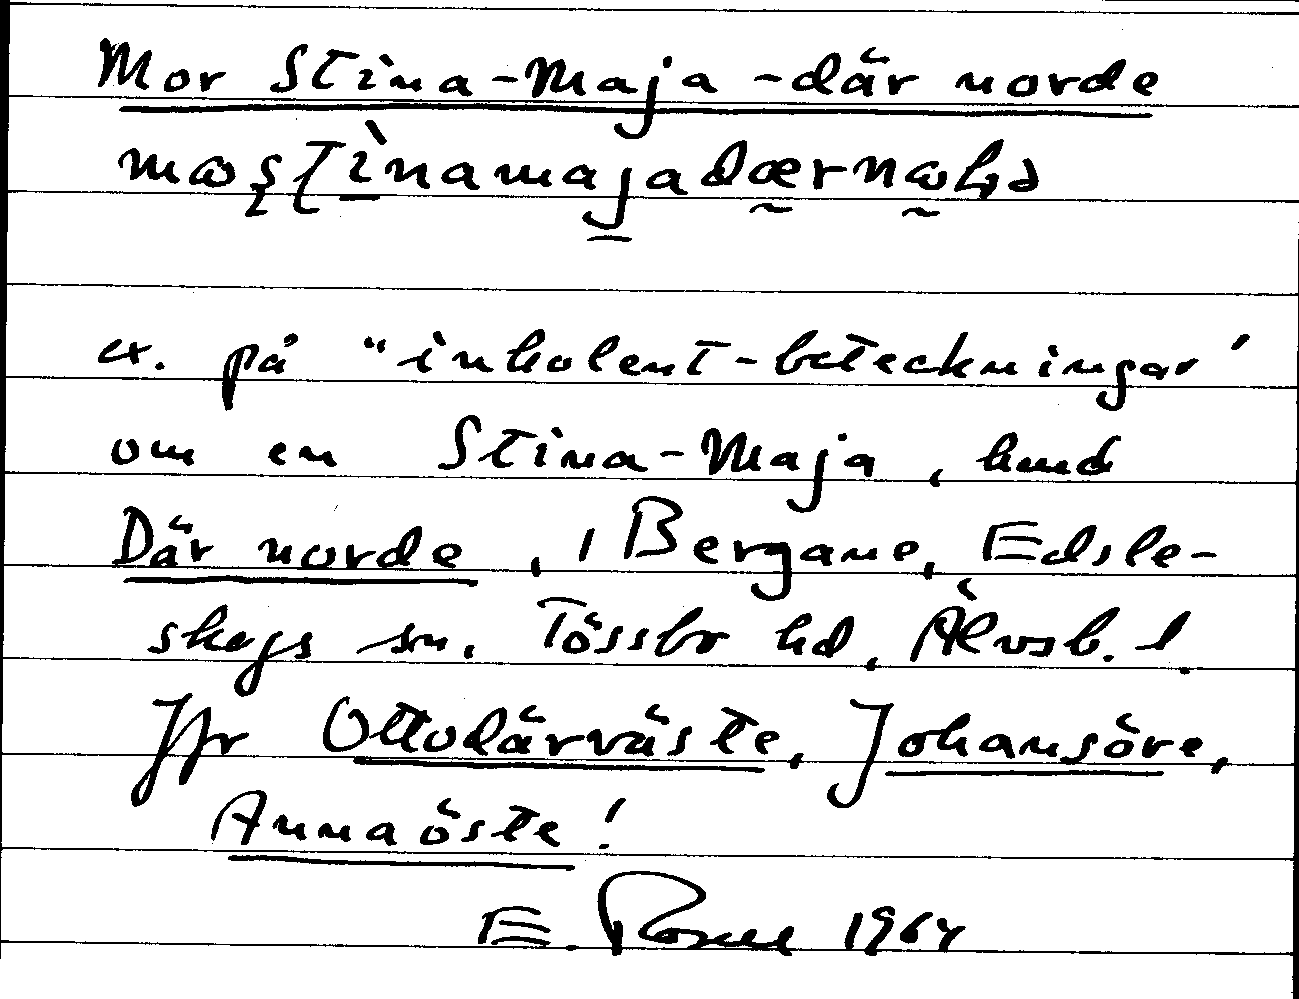 Mor Stina-Maja-där norde
ex. på "inkolent-beteckningar"
om en Stina-Maja, kund
Där norde, i Bergane, Edsle-
skogs sn. Tössbo hd, Älvsb. l.
Jfr Ottodärväste, Johansöre,
Annaöste!
E. 1964